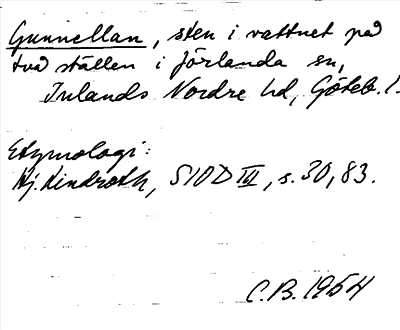 Gunnellan, sten i vattnet på
två ställen i Förlanda sn,
Inlands Nordre hd, Göteb. l.
Etymologi:
Hj. Lindroth, SIOD III, s. 30, 83.
C.B. 1954